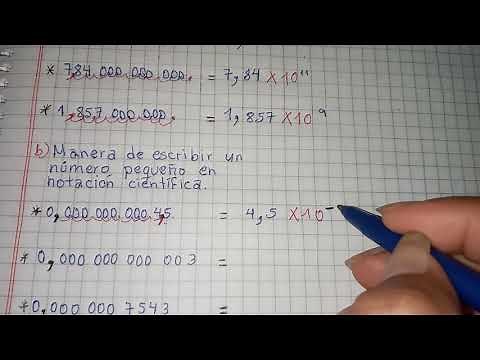 * 7,84 000 000 000. = 7,84 X10¹¹
* 1,857 000 000. = 1,857 X10⁹
b) Manera de escribir un
número pequeño en
notacion científica.
*0,000 000 000 4,5 = 4,5 X10⁻
*0,000 000 000 003 =
*0,000 000 7543 =